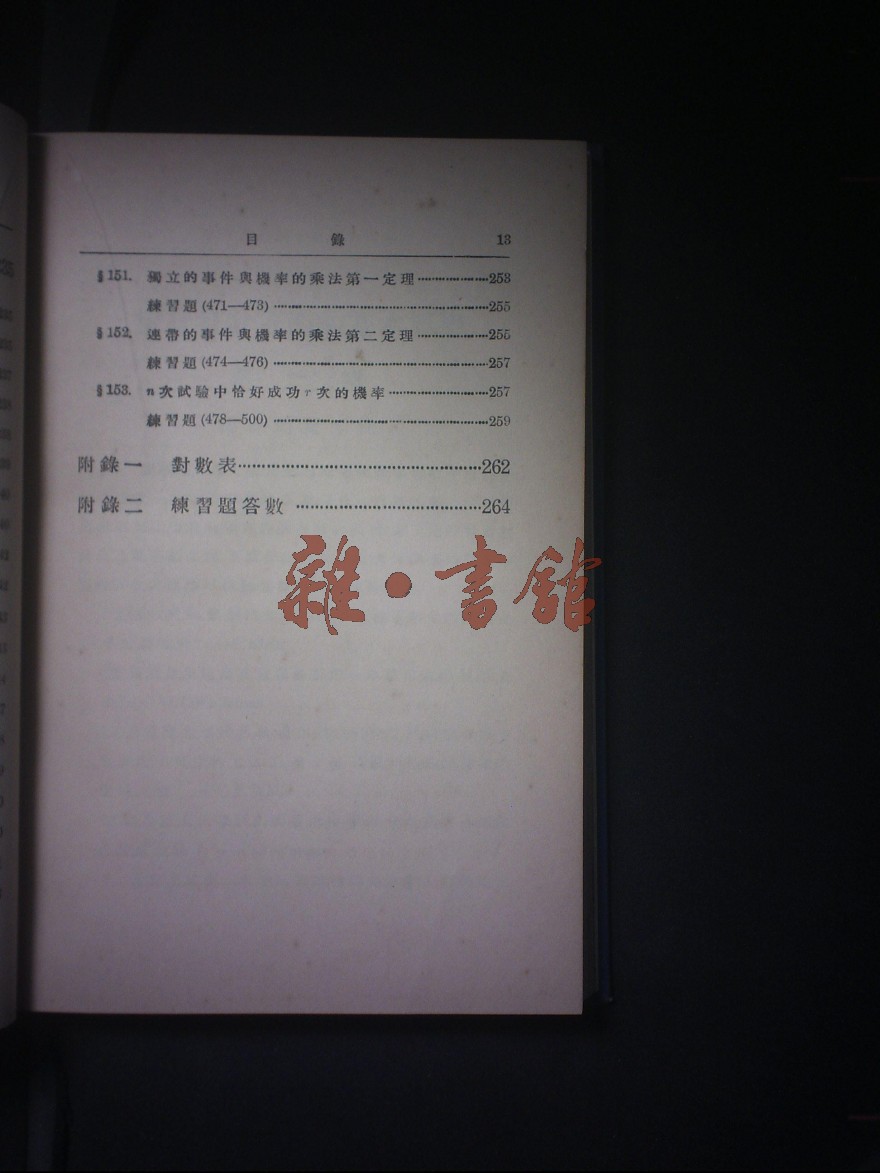 目 錄 13
§151. 獨立的事件與機率的乘法第一定理··················253
練習題(471—473)··················255
§152. 連帶的事件與機率的乘法第二定理··················255
練習題(474—476)··················257
§153. n次試驗中恰好成功r次的機率··················257
練習題(478—500)··················259
附錄一 對數表··················262
附錄二 練習題答數··················264
雜·書館